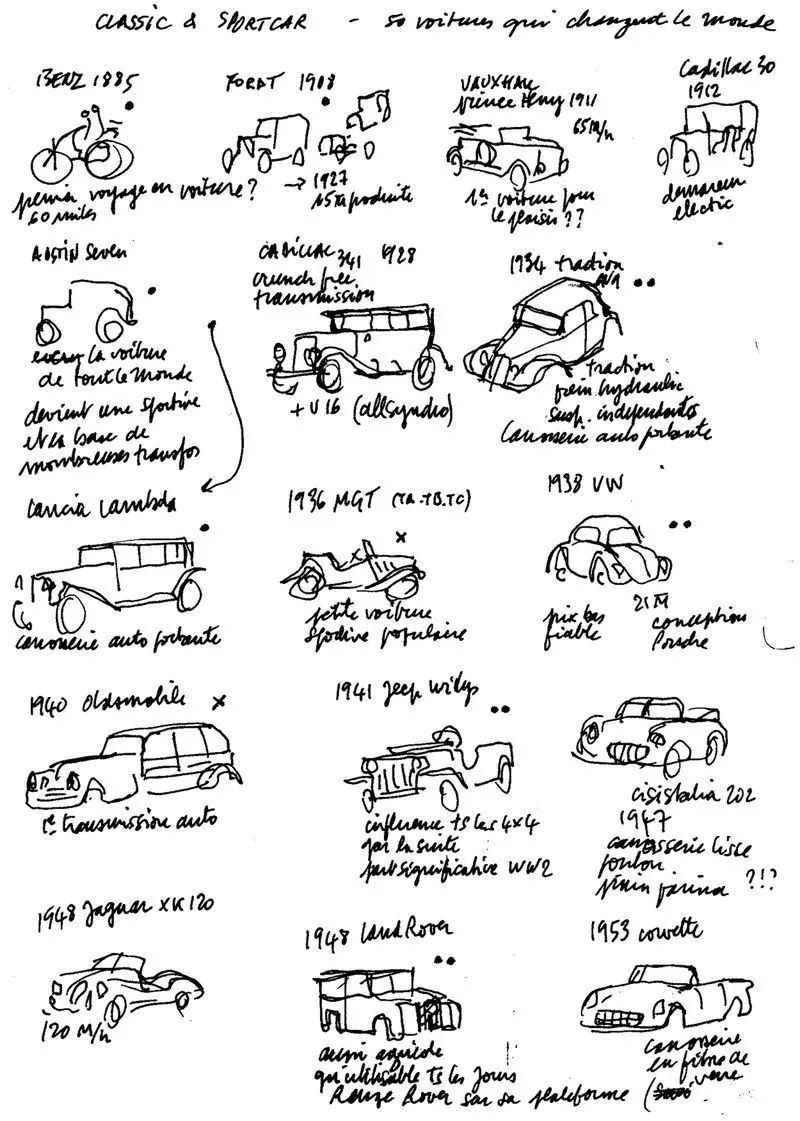 CLASSIC & SPORTCAR - 50 voitures qui changent le monde
BENZ 1885
premier voyage en voiture ?
60 miles
FORD T 1908
→ 1927
15M produite
VAUXHALL
prince Henry 1911
65 M/h
1ère voiture pour
le plaisir ??
Cadillac 30
1912
demarreur
electric
AUSTIN Seven
la voiture
de tout le monde
devient une sportive
et la base de
nombreuses transfos
CADILLAC 341 1928
crunch free
transmission
+ V16 (allsynchro)
1934 traction
AV
traction
frein hydraulic
susp. independantes
Carrosserie auto portante
Lancia Lambda
carrosserie auto portante
1936 MGT (TA-TB-TC)
petite voiture
sportive populaire
1938 VW
prix bas
fiable
21M
conception
Porsche
1940 Oldsmobile
1e transmission auto
1941 Jeep Willys
influence ts les 4x4
par la suite
part significative WW2
cisistalia 202
1947
carrosserie lisse
ponton
pinin farina ?!?
1948 Jaguar XK 120
120 M/h
1948 Land Rover
aussi agricole
qu'utilisable ts les jours
Range Rover sur sa plateforme
1953 corvette
carrosserie
en fibre de
verre